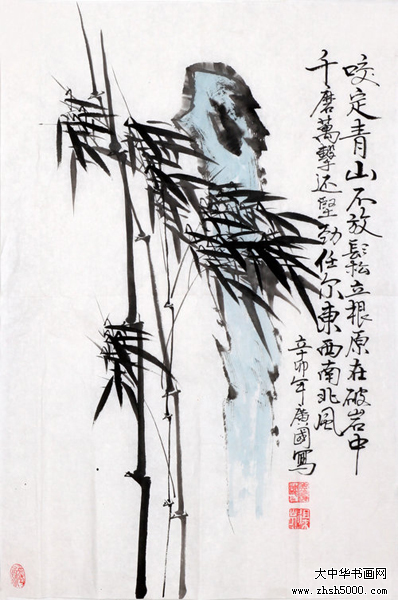 咬定青山不放鬆立根原在破岩中
千磨萬擊还堅劲任尔東西南北风
辛卯年廣國寫
大中华书画网
www.zhsh5000.com